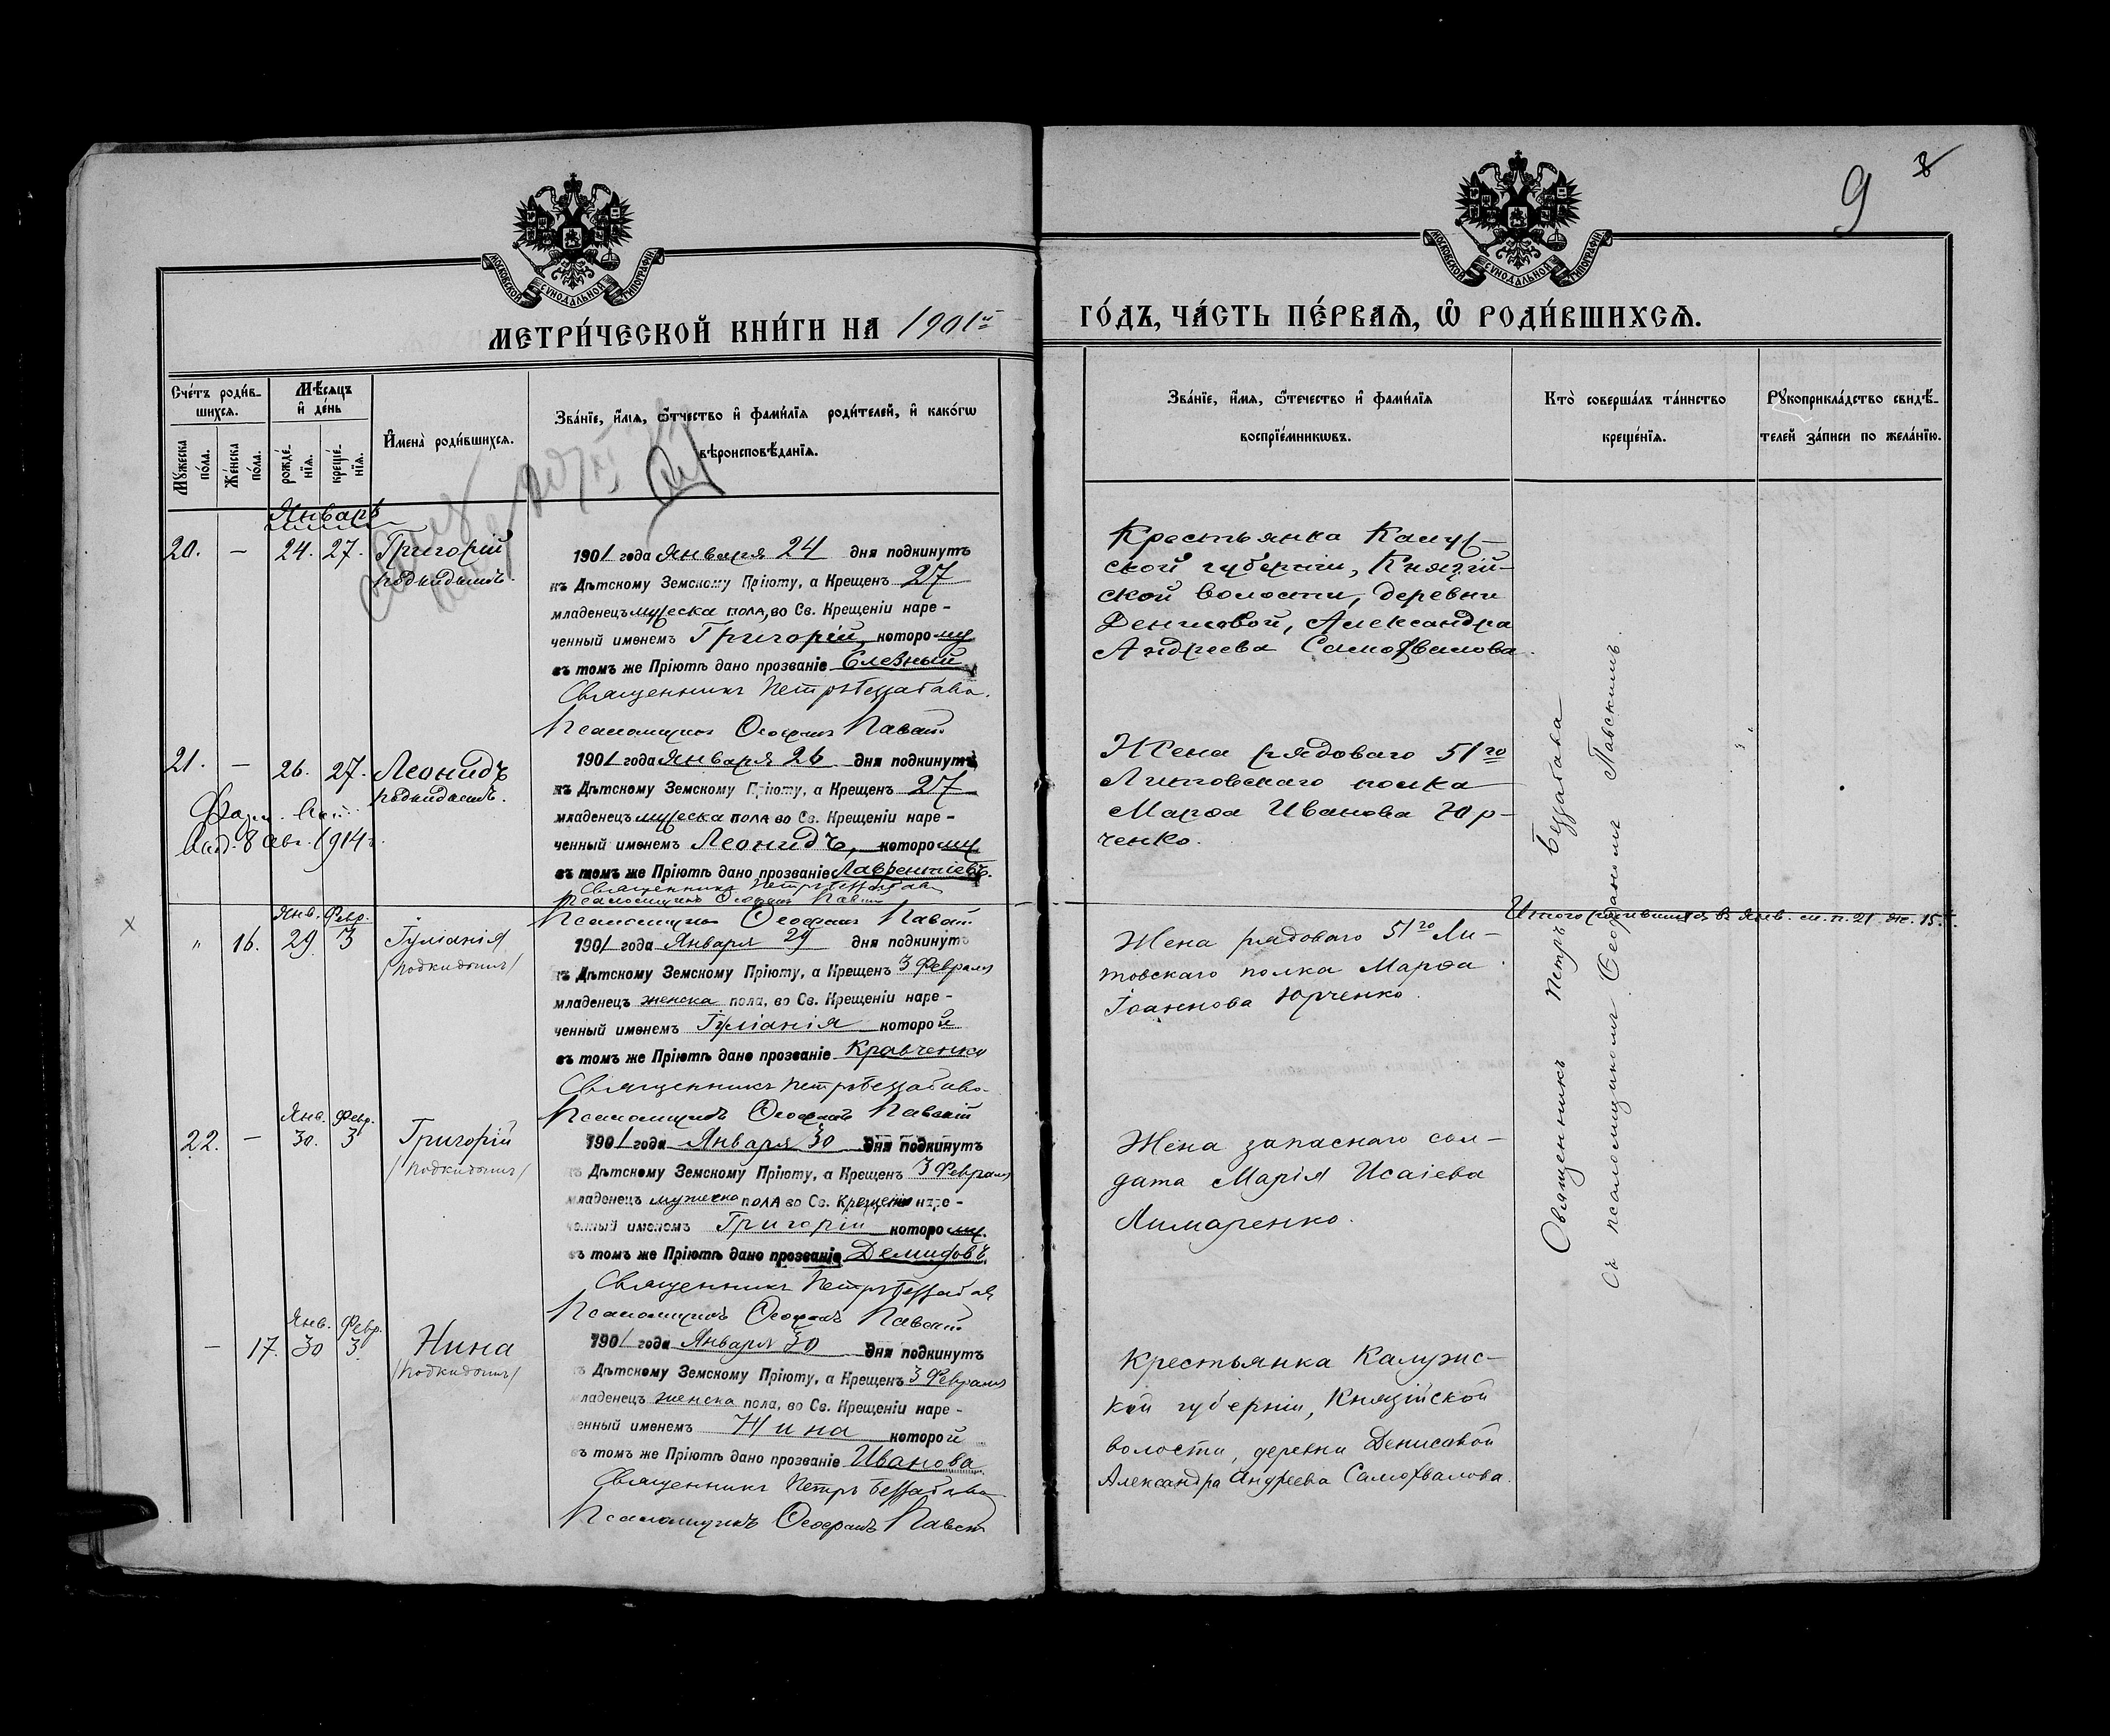 9
МОСКОВСКОЙ СѴНОДАЛЬНОЙ ТИПОГРАФІИ
МОСКОВСКОЙ СѴНОДАЛЬНОЙ ТИПОГРАФІИ
МЕТРИ́ЧЕСКОЙ КНИ́ГИ НА 1901й
ГО́ДЪ, ЧА́СТЬ ПЕ́РВАѦ, Ѡ҆ РОДИ́ВШИХСѦ.
Счéтъ роди́в-
шихсѧ.
Мꙋжеска по́ла.
Же́нска по́ла.
Мѣ́сѧцъ и҆ де́нь
рожде́-
нїѧ.
креще́-
нїѧ.
И҆мена̀ роди́вшихсѧ.
Зва́нїе, и҆́мѧ, ѻ҆́тчество и҆ фами́лїѧ роди́телей, и҆ како́гѡ
вѣроисповѣ́данїѧ.
Зва́нїе, и҆́мѧ, ѻ҆те́чество и҆ фами́лїѧ
воспрїе́мникѡвъ.
Кто̀ соверша́лъ та́инство
креще́нїѧ.
Рꙋкоприкла́дство свидѣ́-
телей за́писи по жела́нїю.
Январь
20. — 24. 27. Григорій
подкидышъ.
1901 года Января 24 дня подкинутъ
къ Дѣтскому Земскому Пріюту, а Крещенъ 27
младенецъ мужеска пола, во Св. Крещеніи наре-
ченный именемъ Григорій, которому
въ томъ же Пріютѣ дано прозваніе
Священникъ Петръ Беззабава.
Псаломщикъ Ѳеофанъ Павскій
Крестьянка Калуж-
ской губерніи, Князій-
ской волости, деревни
Денисовой, Александра
Андреева Самохвалова.
21. — 26. 27. Леонидъ
подкидышъ.
8 авг. 1914 г.
1901 года Января 26 дня подкинутъ
къ Дѣтскому Земскому Пріюту, а Крещенъ 27
младенецъ мужеска пола во Св. Крещеніи наре-
ченный именемъ Леонидъ, которому
въ томъ же Пріютѣ дано прозваніе Лаврентіевъ.
Священникъ Петръ Беззабава
Псаломщикъ Ѳеофанъ Павскій
Псаломщикъ Ѳеофанъ Павскій
Жена рядоваго 51го
Литовскаго полка
Марѳа Иванова Юр-
ченко.
Итого родившихся въ Янв. м. п. 21 ж. 15.
Янв. Февр.
" 16. 29 3 Іуліанія
/подкидышъ/
1901 года Января 29 дня подкинутъ
къ Дѣтскому Земскому Пріюту, а Крещенъ 3 Февраля
младенецъ женска пола, во Св. Крещеніи наре-
ченный именемъ Іуліанія которой
въ томъ же Пріютѣ дано прозваніе Кравченко
Священникъ Петръ Беззабава
Псаломщикъ Ѳеофанъ Павскій
Жена рядоваго 51го Ли-
товскаго полка Марѳа
Іоаннова Юрченко.
Янв. Февр.
22. — 30. 3 Григорій
/подкидышъ/
1901 года Января 30 дня подкинутъ
къ Дѣтскому Земскому Пріюту, а Крещенъ 3 Февраля
младенецъ мужеска пола во Св. Крещеніи наре-
ченный именемъ Григорій которому
въ томъ же Пріютѣ дано прозваніе Демидовъ.
Священникъ Петръ Беззабава
Псаломщикъ Ѳеофанъ Павскій
Жена запаснаго сол-
дата Марія Исаіева
Лимаренко.
Янв. Февр.
— 17. 30 3. Нина
/подкидышъ/
1901 года Января 30 дня подкинутъ
къ Дѣтскому Земскому Пріюту, а Крещенъ 3 Февраля
младенецъ женска пола, во Св. Крещеніи наре-
ченный именемъ Нина которой
въ томъ же Пріютѣ дано прозваніе Иванова
Священникъ Петръ Беззабава
Псаломщикъ Ѳеофанъ Павскій
Крестьянка Калужс-
кой губерніи, Князійской
волости, деревни Денисовой
Александра Андреева Самохвалова.
Священникъ Петръ Беззабава
съ псаломщикомъ Ѳеофаномъ Павскимъ.